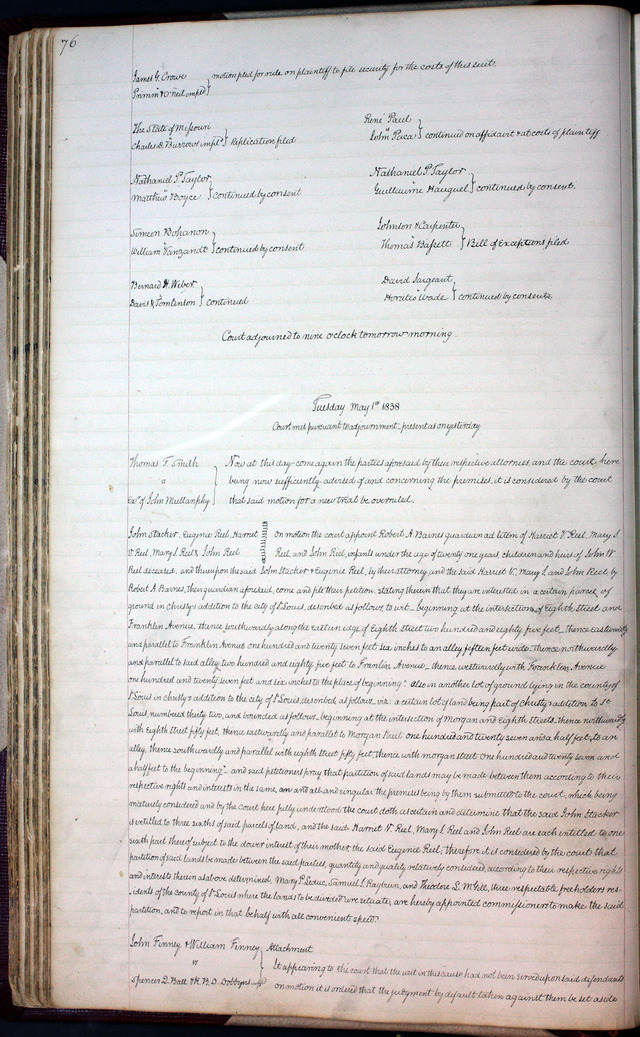 76
James G. Crowe } motion filed for rule on plaintiff to file security for the costs of this suit.
The State of Missouri
Charles D. Burrows impld } Replication filed
René Paul
John Paca } continued on affidavit & at costs of plaintiff
Nathaniel P. Taylor
Matthew Boyce } continued by consent
Nathaniel P. Taylor
Guillaume Hauguel } continued by consent.
Simeon Bohanon
William Vanzandt } continued by consent
Johnson & Carpenter
Thomas Bassett } Bill of Exceptions filed
Bernard H. Wiber
Davis & Tomlinson } continued
David Sargeant
Horatio Wade } continued by consent
Court adjourned to nine o'clock tomorrow morning
Tuesday May 1st 1838
Court met pursuant to adjournment present as on yesterday
Thomas F. Smith
vs
Exr. of John Mullanphy
Now at this day come again the parties aforesaid by their respective attornies, and the court here
being now sufficiently advised of and concerning the premises, it is considered by the court
that said motion for a new trial be overruled.
John Stacker, Eugenie Reel, Harriet on motion the court appoint Robert A. Barnes guardian ad litem of Harriet V. Reel, Mary S.
V. Reel, Mary S. Reel & John Reel Reel, and John Reel, infants under the age of twenty one years, children and heirs of John W.
Reel deceased, and thereupon the said John Stacker & Eugenie Reel, by their attorney and the said Harriet V., Mary S. and John Reel, by
Robert A. Barnes, their guardian aforesaid, come and file their petition, stating therein that they are interested in a certain parcel of
ground in christy's addition to the city of St. Louis, described as follows to wit: beginning at the intersection of Eighth street and
Franklin Avenue, thence southwardly along the eastern edge of Eighth street two hundred and eighty five feet, thence eastwardly
and parallel to Franklin Avenue one hundred and twenty seven feet six inches to an alley fifteen feet wide, thence northwardly
and parallel to said alley two hundred and eighty five feet to Franklin Avenue, thence westwardly with Franklin Avenue
one hundred and twenty seven feet and six inches to the place of beginning. also in another lot of ground lying in the county of
St. Louis in christy's addition to the city of St. Louis described as follows, viz: a certain lot of land being part of christy's addition to St.
Louis, numbered thirty two, and bounded as follows, beginning at the intersection of Morgan and Eighth streets, thence northwardly
with eighth street fifty feet, thence eastwardly and parallel to Morgan street one hundred and twenty seven and a half feet, to an
alley, thence southwardly and parallel with eighth street fifty feet, thence with morgan street one hundred and twenty seven and
a half feet to the beginning. and said petitioners pray that partition of said lands may be made between them according to their
respective rights and interest in the same, and all and singular the premises being by them submitted to the court, which being
maturely considered and by the court here fully understood the court doth ascertain and determine that the said John Stacker
is entitled to three sixths of said parcels of lands, and the said Harriet V. Reel, Mary S. Reel and John Reel are each entitled to one
sixth part thereof subject to the dower interest of their mother the said Eugenie Reel, therefore it is considered by the court that
partition of said lands be made between the said parties, quantity and quality relatively considered, according to their respective rights
and interests therein as above determined, Mary P. Leduc, Samuel S. Rayburn, and Theodore L. McGill, three respectable freeholders res-
idents of the county of St. Louis where the lands to be divided are situate, are hereby appointed commissioners to make the said
partition, and to report in that behalf with all convenient speed.
John Finney & William Finney } Attachment
vs
Spencer D. Ball & R. B. D. Dobbyns
It appearing to the court that the writ in this cause had not been served upon said defendants
on motion it is ordered that the judgment by default taken against them be set aside